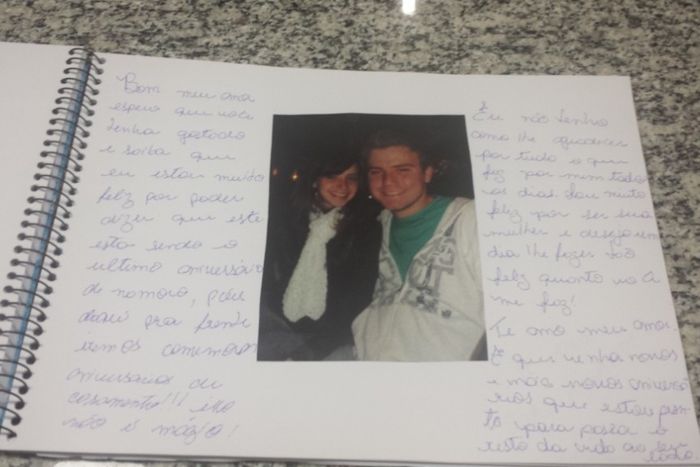 Bom meu amor
espero que você
tenha gostado
e saiba que
eu estou muito
feliz por poder
dizer que este
está sendo o
ultimo aniversário
de namoro, pois
daqui pra frente
iremos comemorar
aniversários de
casamento!!! isso
não é mágico!
Eu não tenho
como lhe agradecer
por tudo o que
fez por mim todos
os dias. Sou muito
feliz por ser sua
mulher e desejo um
dia lhe fazer tão
feliz quanto você
me faz!
Te amo meu amor.
E que venha novos
e mão novos aniversá
rios que estou pron
ta para passar o
resto da vida ao seu
lado